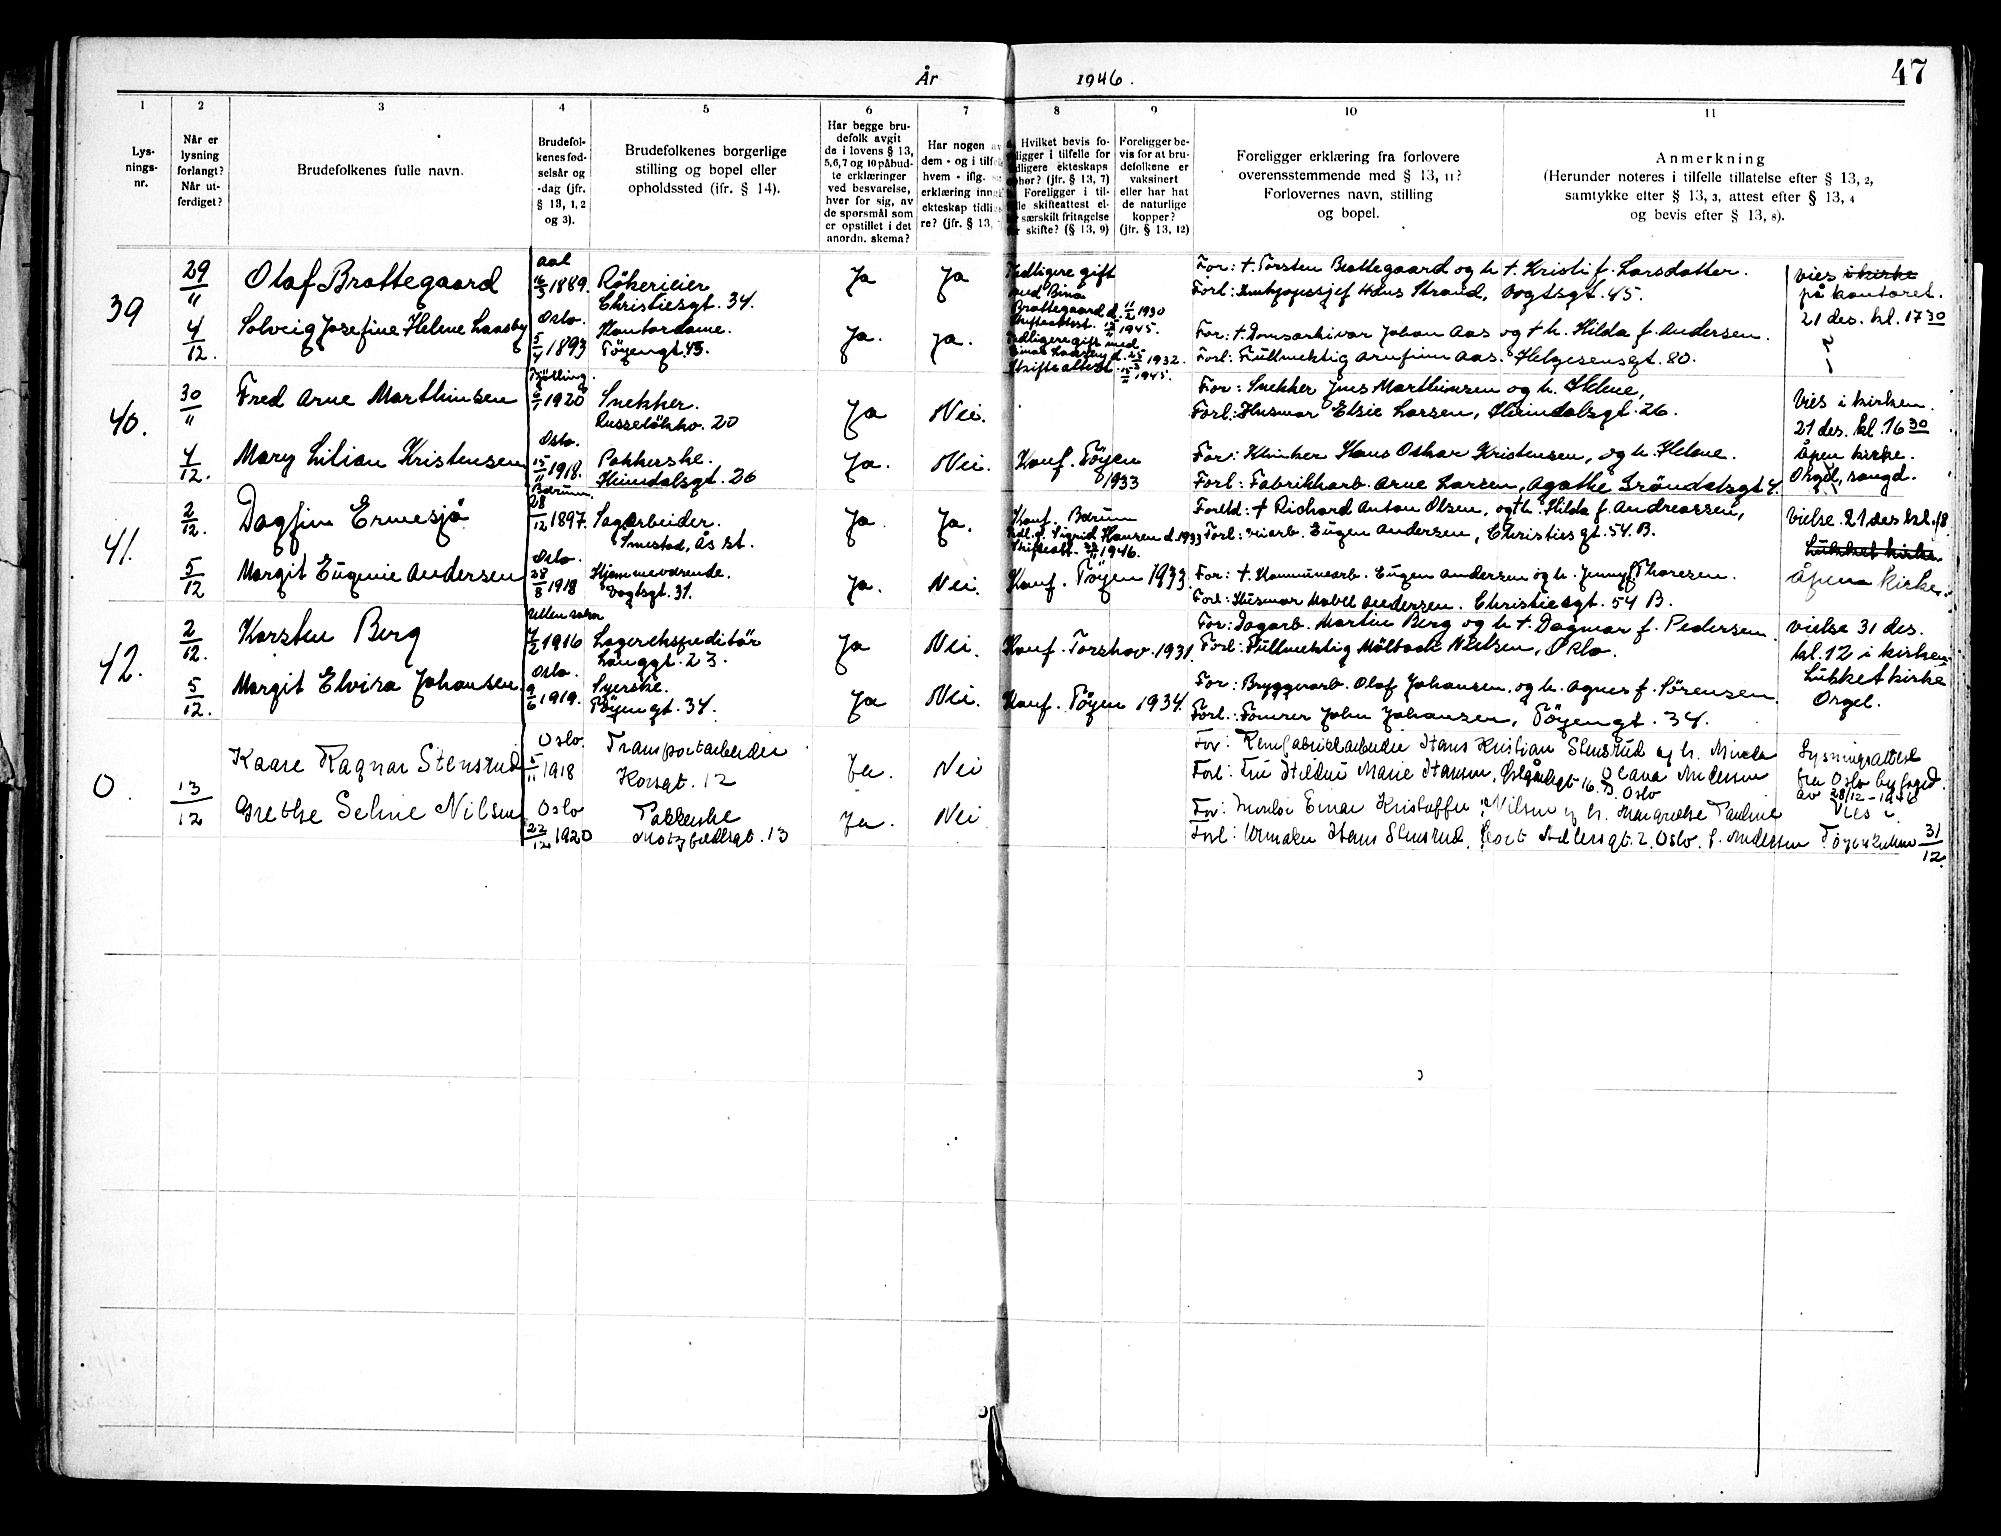 År 1946.
47
1 2 3 4 5 6 7 8 9 10 11
Lys-
nings-
nr.
Når er
lysning
forlangt?
Når ut-
ferdiget?
Brudefolkenes fulle navn.
Brudefol-
kenes fød-
selsår og
-dag (jfr.
§ 13, 1, 2
og 3).
Brudefolkenes borgerlige
stilling og bopel eller
opholdssted (jfr. § 14).
Har begge bru-
defolk avgit
de i lovens § 13,
5,6,7 og 10 påbud-
te erklæringer
ved besvarelse,
hver for sig, av
de spørsmål som
er opstillet i det
anordn. skema?
Har nogen av
dem - og i tilfelle
hvem - iflg.
erklæring inngått
ekteskap tidlige-
re? (jfr. § 13,
Hvilket bevis fo-
religger i tilfelle for
tidligere ekteskaps
ophør? (jfr. § 13, 7)
Foreligger i til-
felle skifteattest el-
særskilt fritagelse
for skifte? (§ 13, 9)
Foreligger be-
vis for at bru-
defolkene er
vaksinert
eller har hat
de naturlige
kopper?
(jfr. § 13, 12)
Foreligger erklæring fra forlovere
overensstemmende med § 13, 11?
Forlovernes navn, stilling
og bopel.
Anmerkning
(Herunder noteres i tilfelle tillatelse efter § 13, 2,
samtykke efter § 13, 3, attest efter § 13, 4
og bevis efter § 13, 8).
39
29/11 Olaf Brattegaard
Aal 16/3 1889.
Røkerieier
Christiesgt. 34.
Ja Ja
Tidligere gift
med Bina
Brattegaard d. 11/2 1930
Skifteattest 15/2 1945.
For: † Torsten Brattegaard og h. † Kristi f. Larsdatter.
Forl: Innkjøpssjef Hans Strand, Vogtsgt. 45.
Vies i kirke
på kontoret.
21 des. kl. 17 30
4/12. Solveig Josefine Helene Laasby
Oslo. 5/4 1893
Kontordame.
Tøyengt. 43.
Ja. Ja.
Tidligere gift med
Einar Laasby d. 25/5 1932.
Skifteattest 15/2 1945.
For: † Domsarkivar Johan Aas og † h. Hilda f. Andersen.
Forl: Fullmektig Arnfinn Aas. Helgesensgt. 80.
40.
30/11 Fred Arne Marthinsen
Tjølling. 6/1 1920
Snekker.
Russeløkkv. 20
Ja Nei.
For: Snekker Jens Marthinsen og h. Helene,
Forl: Husmor Elsie Larsen, Heimdalsgt. 26.
Vies i kirken.
21 des. kl. 16 30
Åpen kirke.
Orgel, sangd.
4/12. Mary Lilian Kristensen
Oslo. 15/11 1918.
Pakkerske.
Heimdalsgt. 26
Ja. Nei.
Konf. Tøyen
1933
For: Klinker Hans Oskar Kristensen, og h. Helene.
Forl: Fabrikkarb. Arne Larsen, Agathe Grøndalsgt 4.
41.
2/12. Dagfin Ermesjø
Bærum. 28/12 1897.
Sagarbeider.
Smestad, Ås st.
Ja. Ja.
Konf. Bærum
Tidl. g. Sigrid Hansen d. 1933
Skifteatt. 1946.
Foreld: † Richard Anton Olsen, og † h. Hilda f. Andreassen,
Forl: Veiarb. Eugen Andersen, Christiesgt. 54. B.
Vielse 21 des kl. 18
Lukket kirke.
Åpen kirke
5/12 Margit Eugenie Andersen
Oslo. 28/8 1918
Hjemmeværende.
Vogtsgt. 31.
Ja. Nei.
Konf. Tøyen 1933.
For: † Kommunearb. Eugen Andersen og h. Jenny f Thoresen.
Forl: Husmor Mabel Andersen. Christiesgt. 54 B.
42.
2/12. Karsten Berg
Ullensaker 7/2 1916
Lagerekspeditør
Langgt. 23.
Ja Nei.
Konf. Torshov. 1931.
For: Dagarb. Martin Berg og h. † Dagmar f. Pedersen
Forl: Fullmektig Mølbach Nielsen, Oslo.
Vielse 31 des.
kl. 12 i kirken
Lukket kirke
Orgel.
5/12. Margit Elvira Johansen.
Oslo. 9/6 1919.
Syerske.
Tøyengt. 34.
Ja Nei.
Konf. Tøyen 1934.
For: Bryggerarb. Olaf Johansen. og h. Agnes f. Sørensen
Forl: Fourer John Johansen, Tøyengt. 34.
0.
13/12
Kaare Ragnar Stensrud
Oslo 5/11 1918
Transportarbeider
Korsgt. 12
Ja. Nei
For: Remfabrikkarbeider Hans Kristian Stensrud og h.
Olava Andersen
Forl: Fru Hildur Marie Hansen, 16. B. Oslo
Lysningsattest
fra Oslo byfogd.
av 28/12 - 1946
Vies i
Tøyenkirken 31/12.
Grethe Seline Nilsen
Oslo 22/12 1920
Pakkerske
Motzfeldtsgt. 13
Ja. Nei
For: Einar Kristoffer Nilsen og h. Margrethe Pauline
f. Andersen
Forl: Urmaker Hans Stensrud, Stillersgt. 2. Oslo.